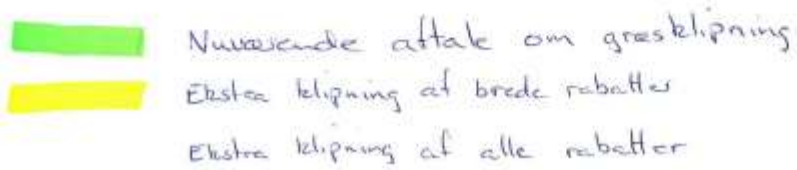 Nuværende aftale om græsklipning
Ekstra klipning af brede rabatter
Ekstra klipning af alle rabatter